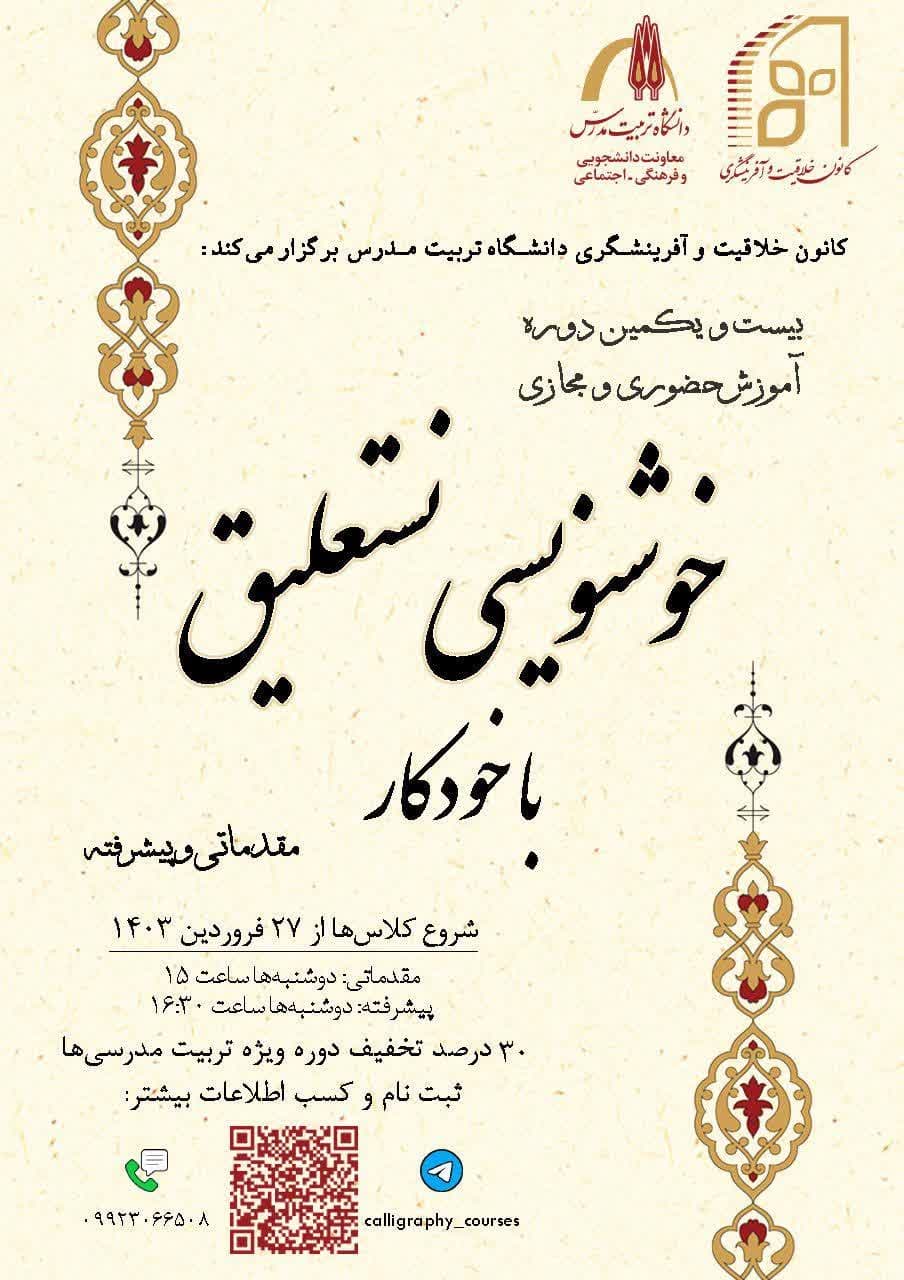 دانشگاه تربیت مدرس
معاونت دانشجویی
و فرهنگی - اجتماعی
کانون خلاقیت و آفرینشگری
کانون خلاقیت و آفرینشگری دانشگاه تربیت مدرس برگزار می‌کند:
بیست و یکمین دوره
آموزش حضوری و مجازی
خوشنویسی نستعلیق
با خودکار
مقدماتی و پیشرفته
شروع کلاس‌ها از ۲۷ فروردین ۱۴۰۳
مقدماتی: دوشنبه‌ها ساعت ۱۵
پیشرفته: دوشنبه‌ها ساعت ۱۶:۳۰
۳۰ درصد تخفیف دوره ویژه تربیت مدرسی‌ها
ثبت نام و کسب اطلاعات بیشتر:
calligraphy_courses
۰۹۹۲۳۰۶۶۵۰۸